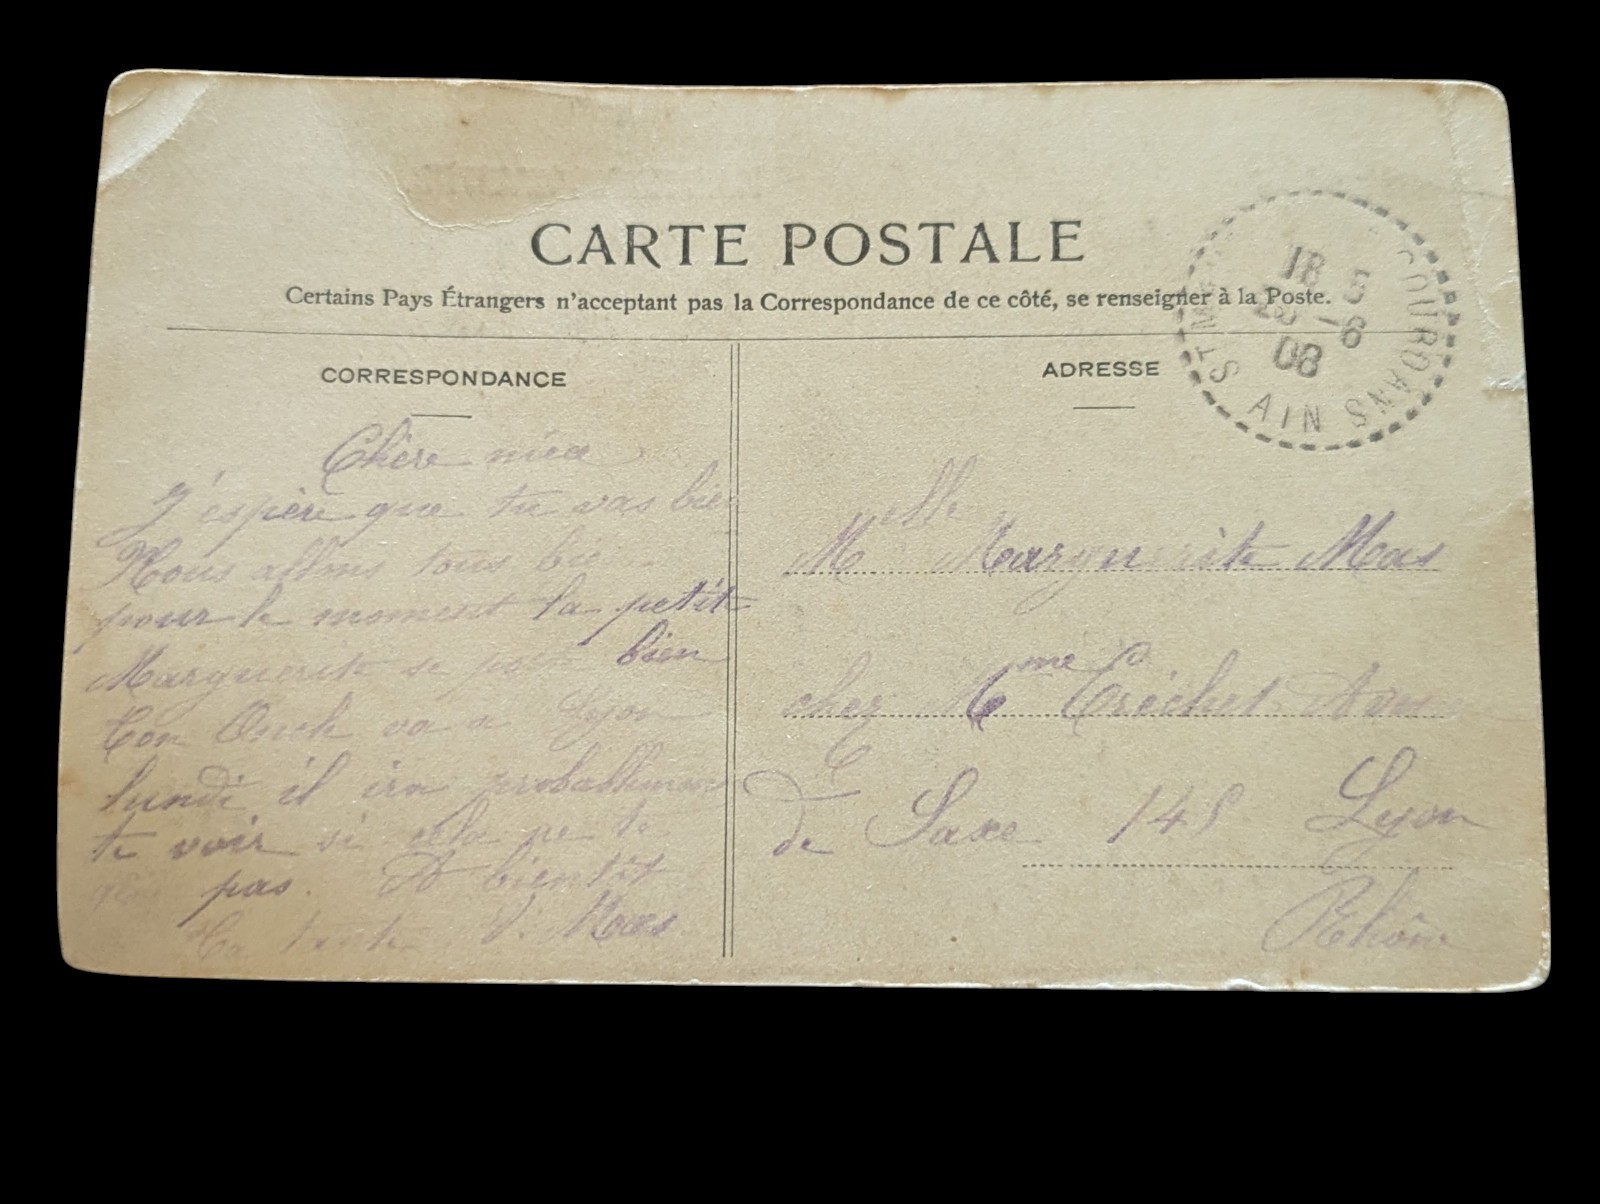 CARTE POSTALE
Certains Pays Étrangers n'acceptant pas la Correspondance de ce côté, se renseigner à la Poste.
ST M COURDANS
AIN
18 5
-6
08
CORRESPONDANCE
Chère nièce
J'espère que tu vas bien
Nous allons tous bien
pour le moment la petite
Marguerite se porte bien
Ton Oncle va a Lyon
lundi il ira probablement
te voir si cela ne te
gêne pas. A bientôt
Ta tante V. Mas
ADRESSE
Melle Marguerite Mas
chez Mme Créchet
de Saxe 145 Lyon
Rhône